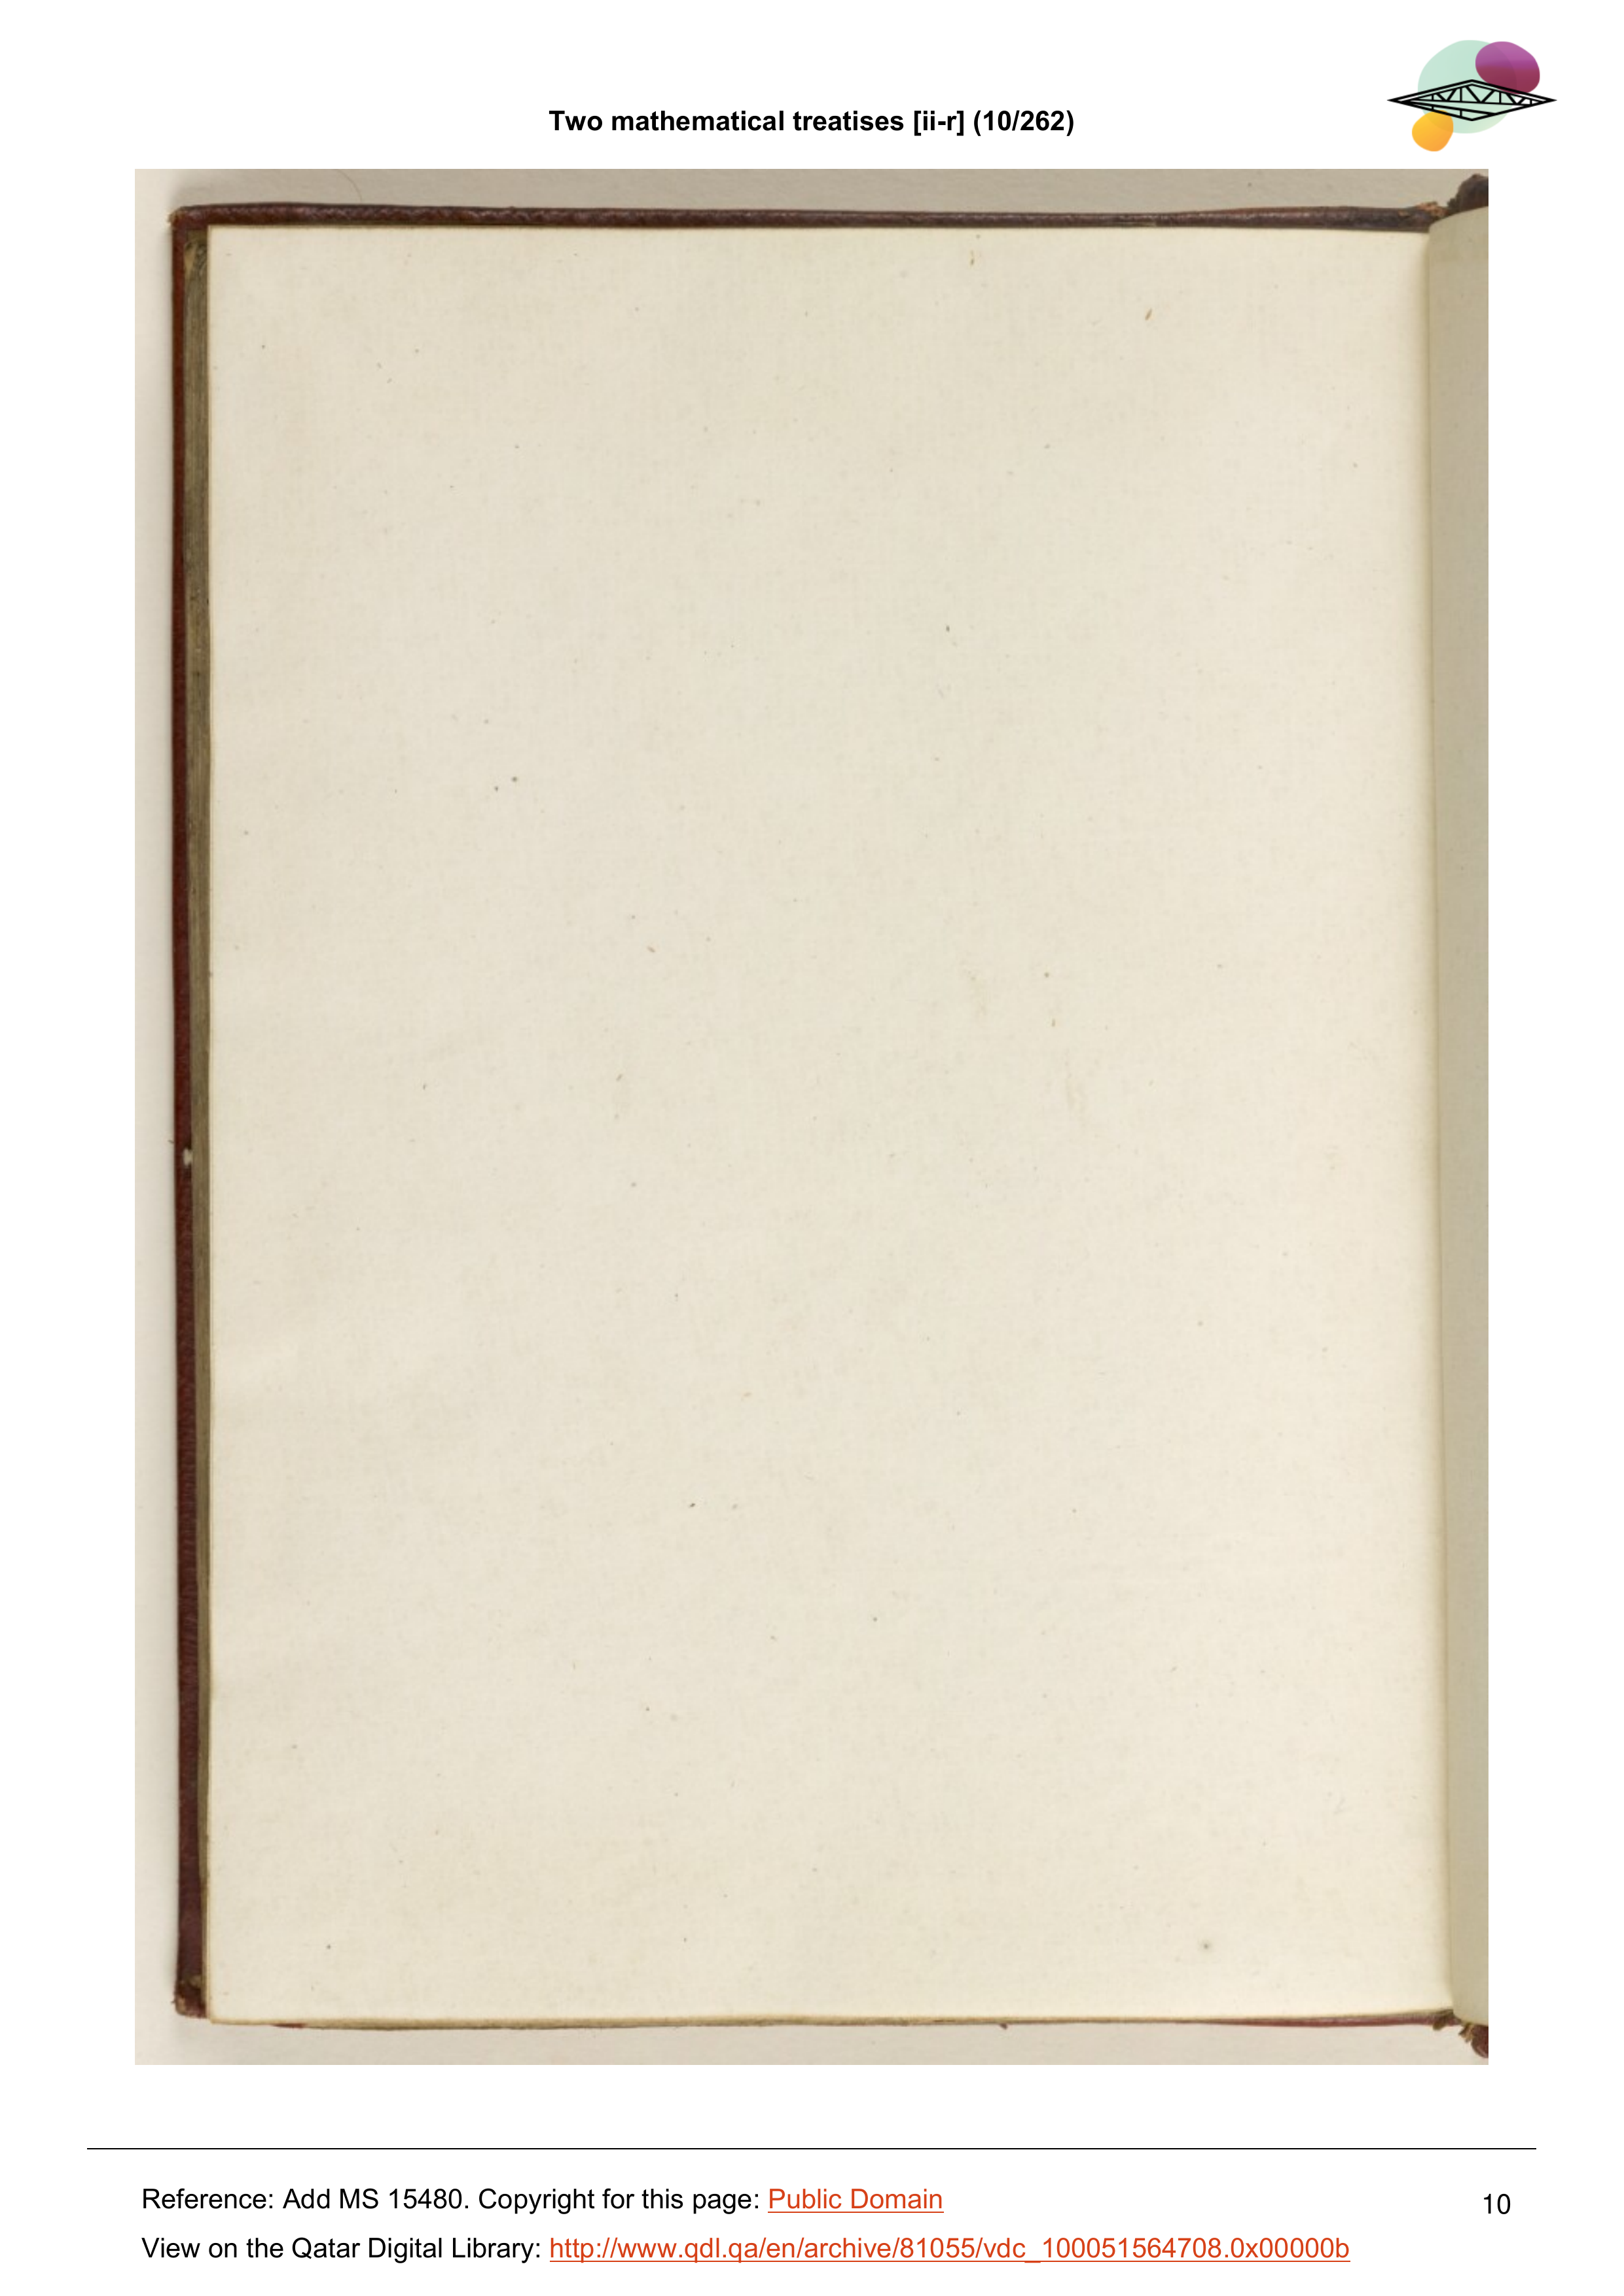 Two mathematical treatises [ii-r] (10/262)
Reference: Add MS 15480. Copyright for this page: Public Domain
10
View on the Qatar Digital Library: http://www.qdl.qa/en/archive/81055/vdc_100051564708.0x00000b